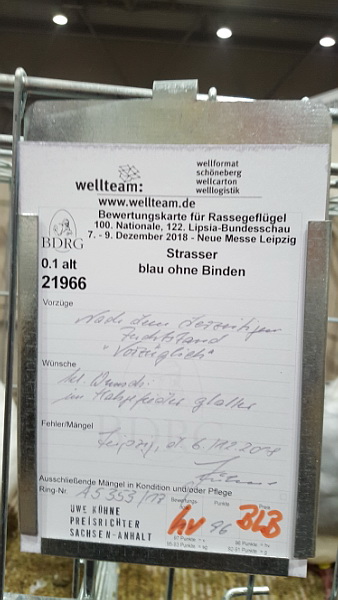 wellteam:
wellformat
schöneberg
wellcarton
welllogistik
www.wellteam.de
Bewertungskarte für Rassegeflügel
100. Nationale, 122. Lipsia-Bundesschau
7. - 9. Dezember 2018 - Neue Messe Leipzig
BDRG
Strasser
blau ohne Binden
0.1 alt
21966
Vorzüge
Nach dem derzeitigen
Zuchtstand
"Vorzüglich"
Wünsche
kl. Wunsch:
im Halsgefieder glatter
Fehler/Mängel
Leipzig, d. 6.12.2018
Ausschließende Mängel in Kondition und/oder Pflege
Ring-Nr. AS 353/17
Bewertungs-
Punkte
Preis
hv 96 BLB
UWE KÖHNE
PREISRICHTER
SACHSEN-ANHALT
97 Punkte = v
96 Punkte = hv